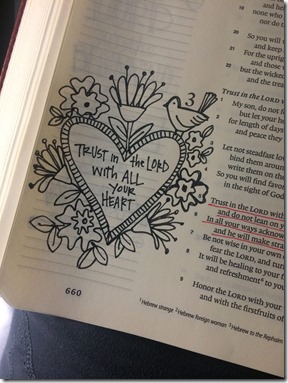 TRUST in the LORD
with ALL
YOUR
HEART
19
none who
nor do
20 So you will
and keep
21 For the
and those
22 but the wicked
and the
Trust in the LORD
3
1 My son, do not
2 but let your
for length of days
and peace they
3 Let not steadfast
bind them
write them on
So you will find favor
in the sight of God
Trust in the LORD with
and do not lean on
In all your ways
and he will make
7 Be not wise in your own
fear the LORD, and turn
8 It will be healing to your
and refreshment to your
9 Honor the LORD with your
and with the firstfruits of
660
1 Hebrew strange 2 Hebrew foreign woman 3 Hebrew to the Rephaim